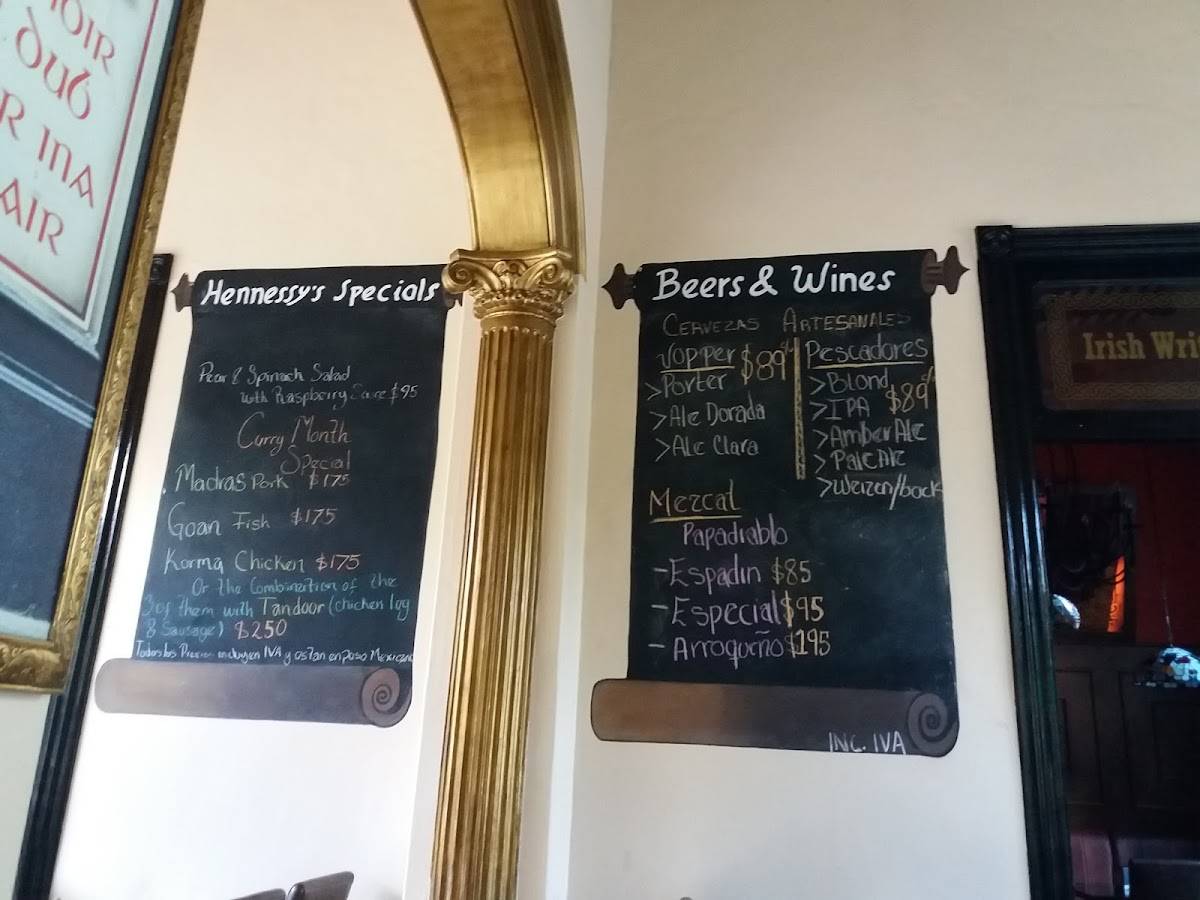 OIR
dub
R INA
AIR
Hennessy's Specials
Pear & Spinach Salad
with Raspberry Sauce $95
Curry Month
Special
Madras Pork $175
Goan Fish $175
Korma Chicken $175
Or the Combination of the
3 of them with Tandoor (chicken leg
& Sausage) $250
Todos los Precios incluyen IVA y estan en peso Mexicano
Beers & Wines
CERVEZAS ARTESANALES
Vopper $89 c/u
>Porter
>Ale Dorada
>Ale Clara
Pescadores
>Blond c/u
>IPA $89
>Amber Ale
>Pale Ale
>Weizen/bock
Mezcal
Papadiablo
-Espadin $85
-Especial $95
-Arroqueño $195
INC. IVA
Irish Wri